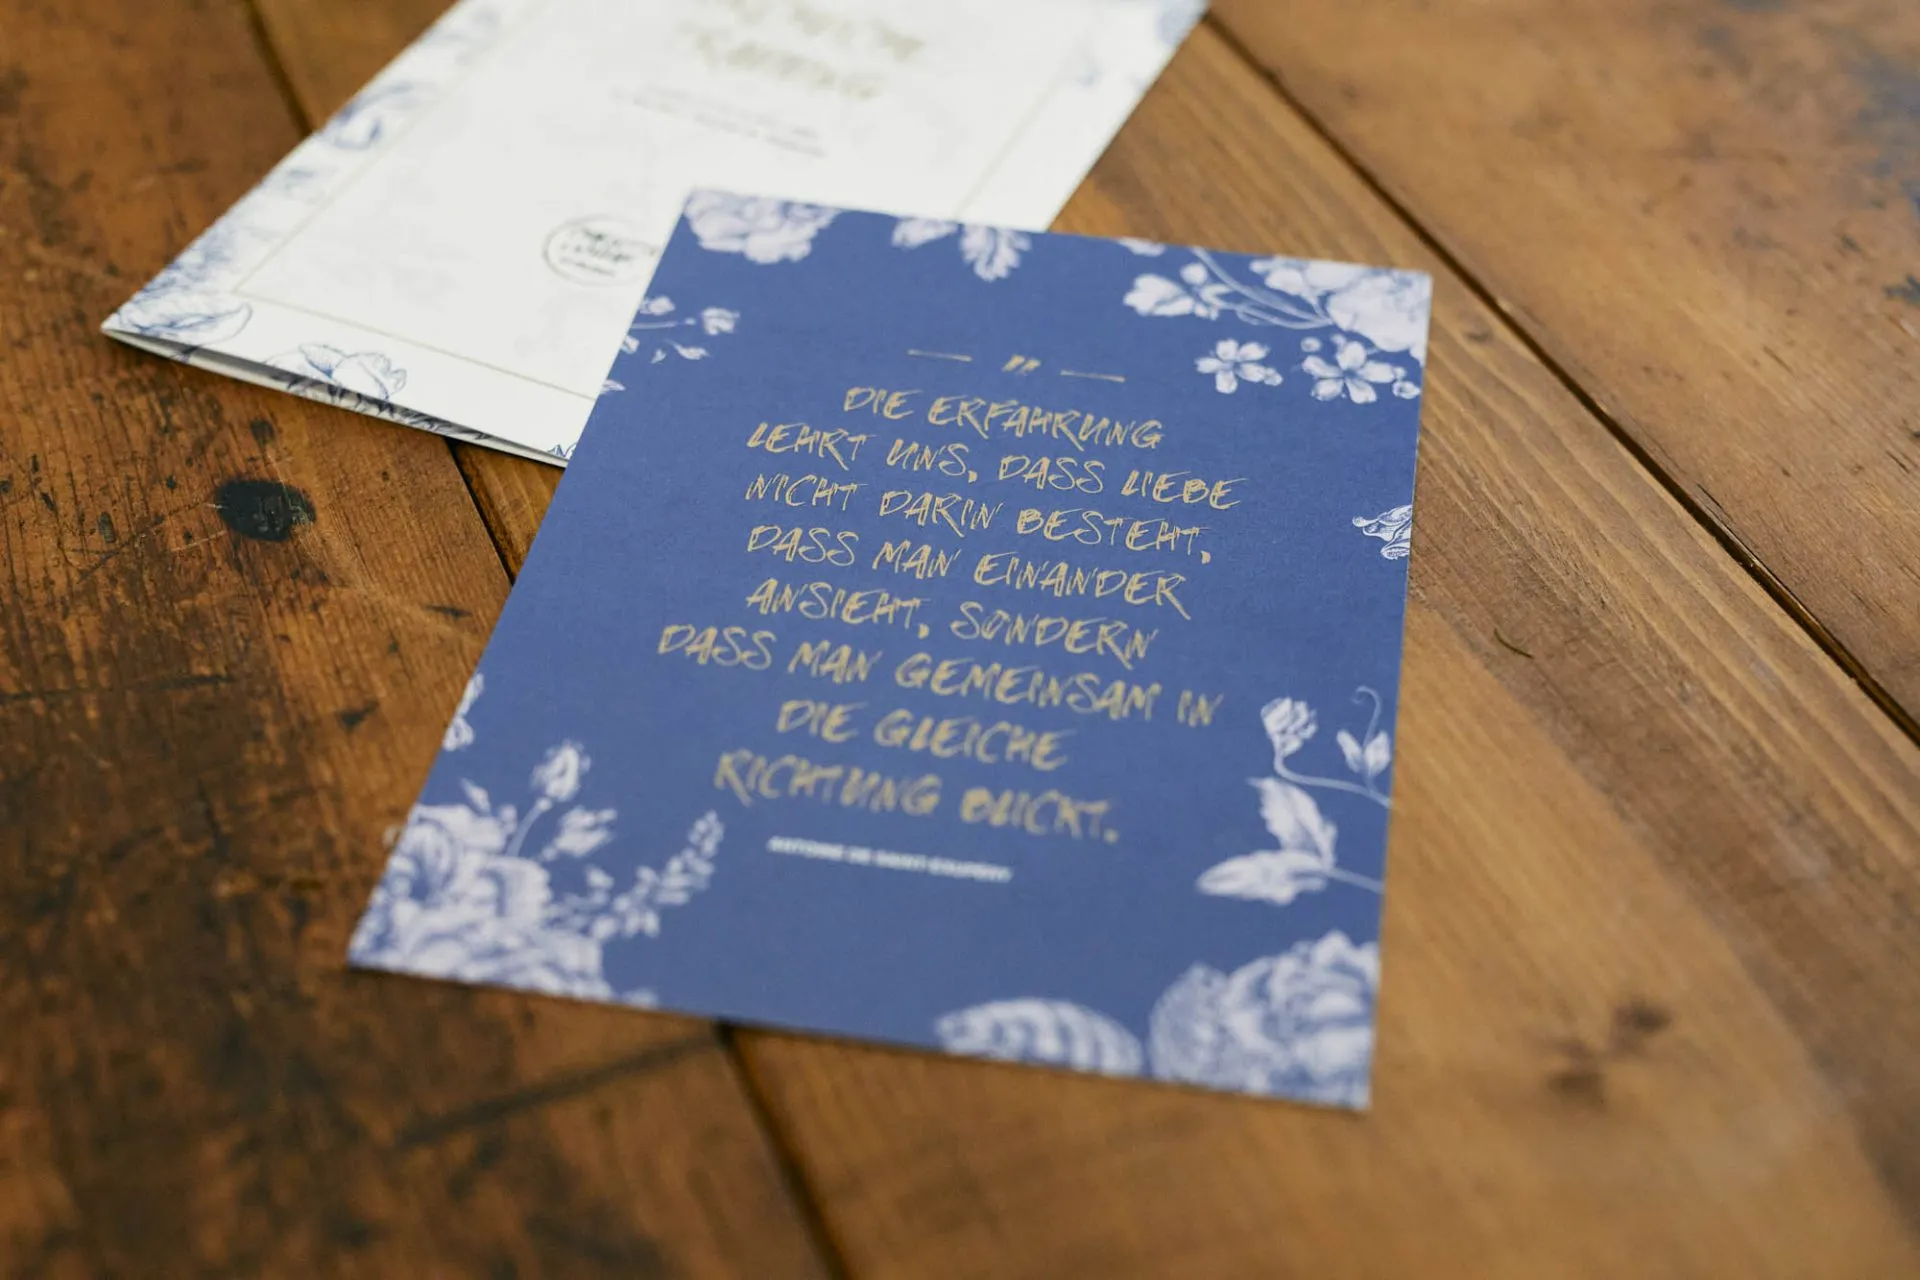 "
DIE ERFAHRUNG
LEHRT UNS, DASS LIEBE
NICHT DARIN BESTEHT,
DASS MAN EINANDER
ANSIEHT, SONDERN
DASS MAN GEMEINSAM IN
DIE GLEICHE
RICHTUNG BLICKT.
ANTOINE DE SAINT-EXUPÉRY